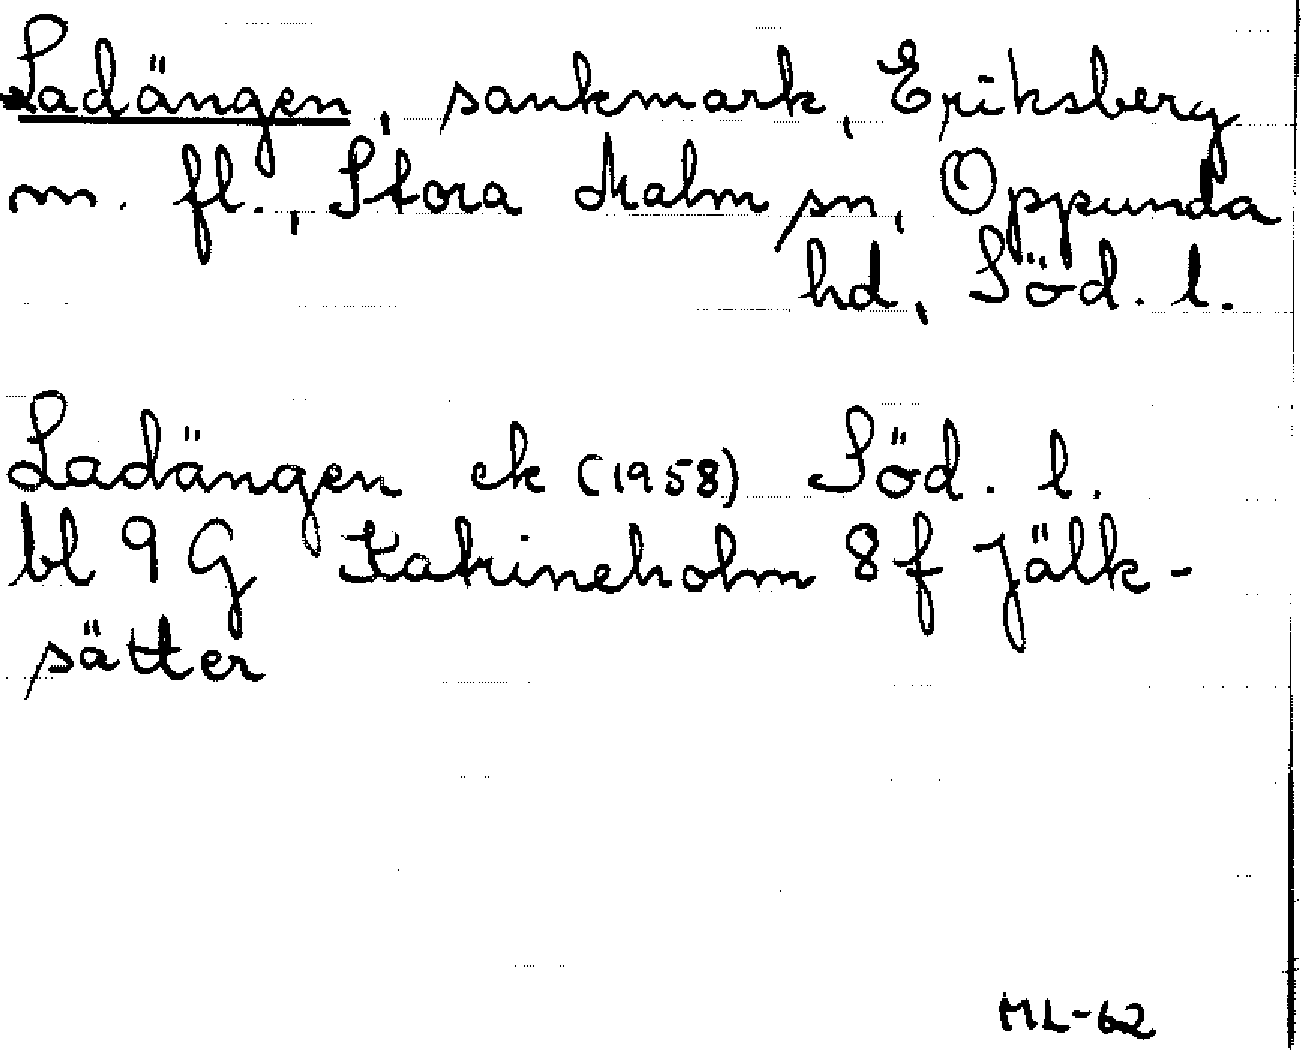 Ladängen, sankmark, Eriksberg
m. fl., Stora Malm sn, Oppunda
hd, Söd. l.
Ladängen ek (1958) Söd. l.
bl 9 G Katrineholm 8 f Jälk-
sätter
ML-62